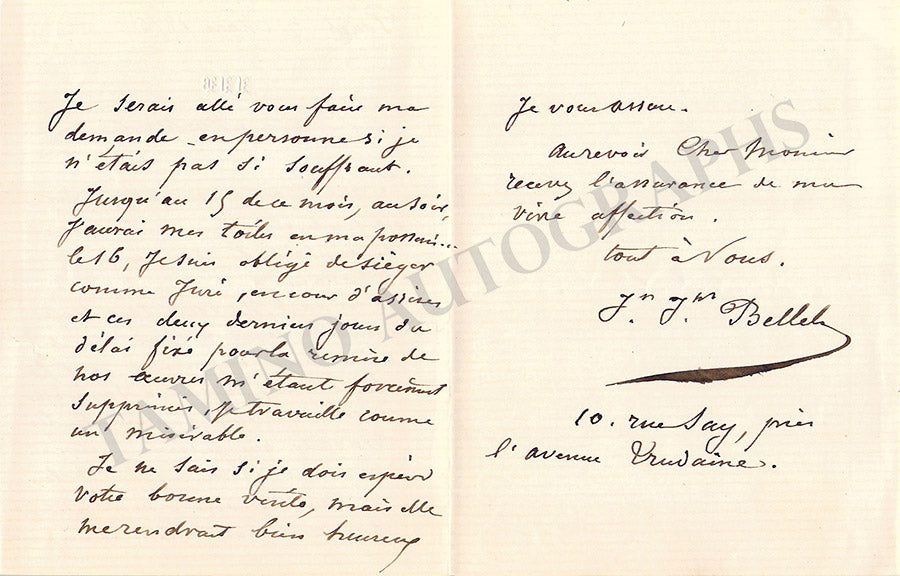 Je serais allé vous faire ma
demande en personne si je
n'étais pas si souffrant.
Jusqu'au 15 de ce mois, au soir,
J'aurai mes toiles en ma possess...
le 16, Je suis obligé de siéger
comme Juré, en cour d'assises
et ces deux derniers jours du
délai fixé pour la remise de
nos œuvres m'étant forcément
supprimés, Je travaille comme
un misérable.
Je ne sais si je dois espérer
votre bonne visite, mais elle
me rendrait bien heureux
Je vous assure.
Au revoir Cher Monsieur
recevez l'assurance de ma
vive affection.
tout à Vous.
Jn. Jph Bellel
10. rue Say, près
l'avenue Trudaine.
TAMINO AUTOGRAPHS